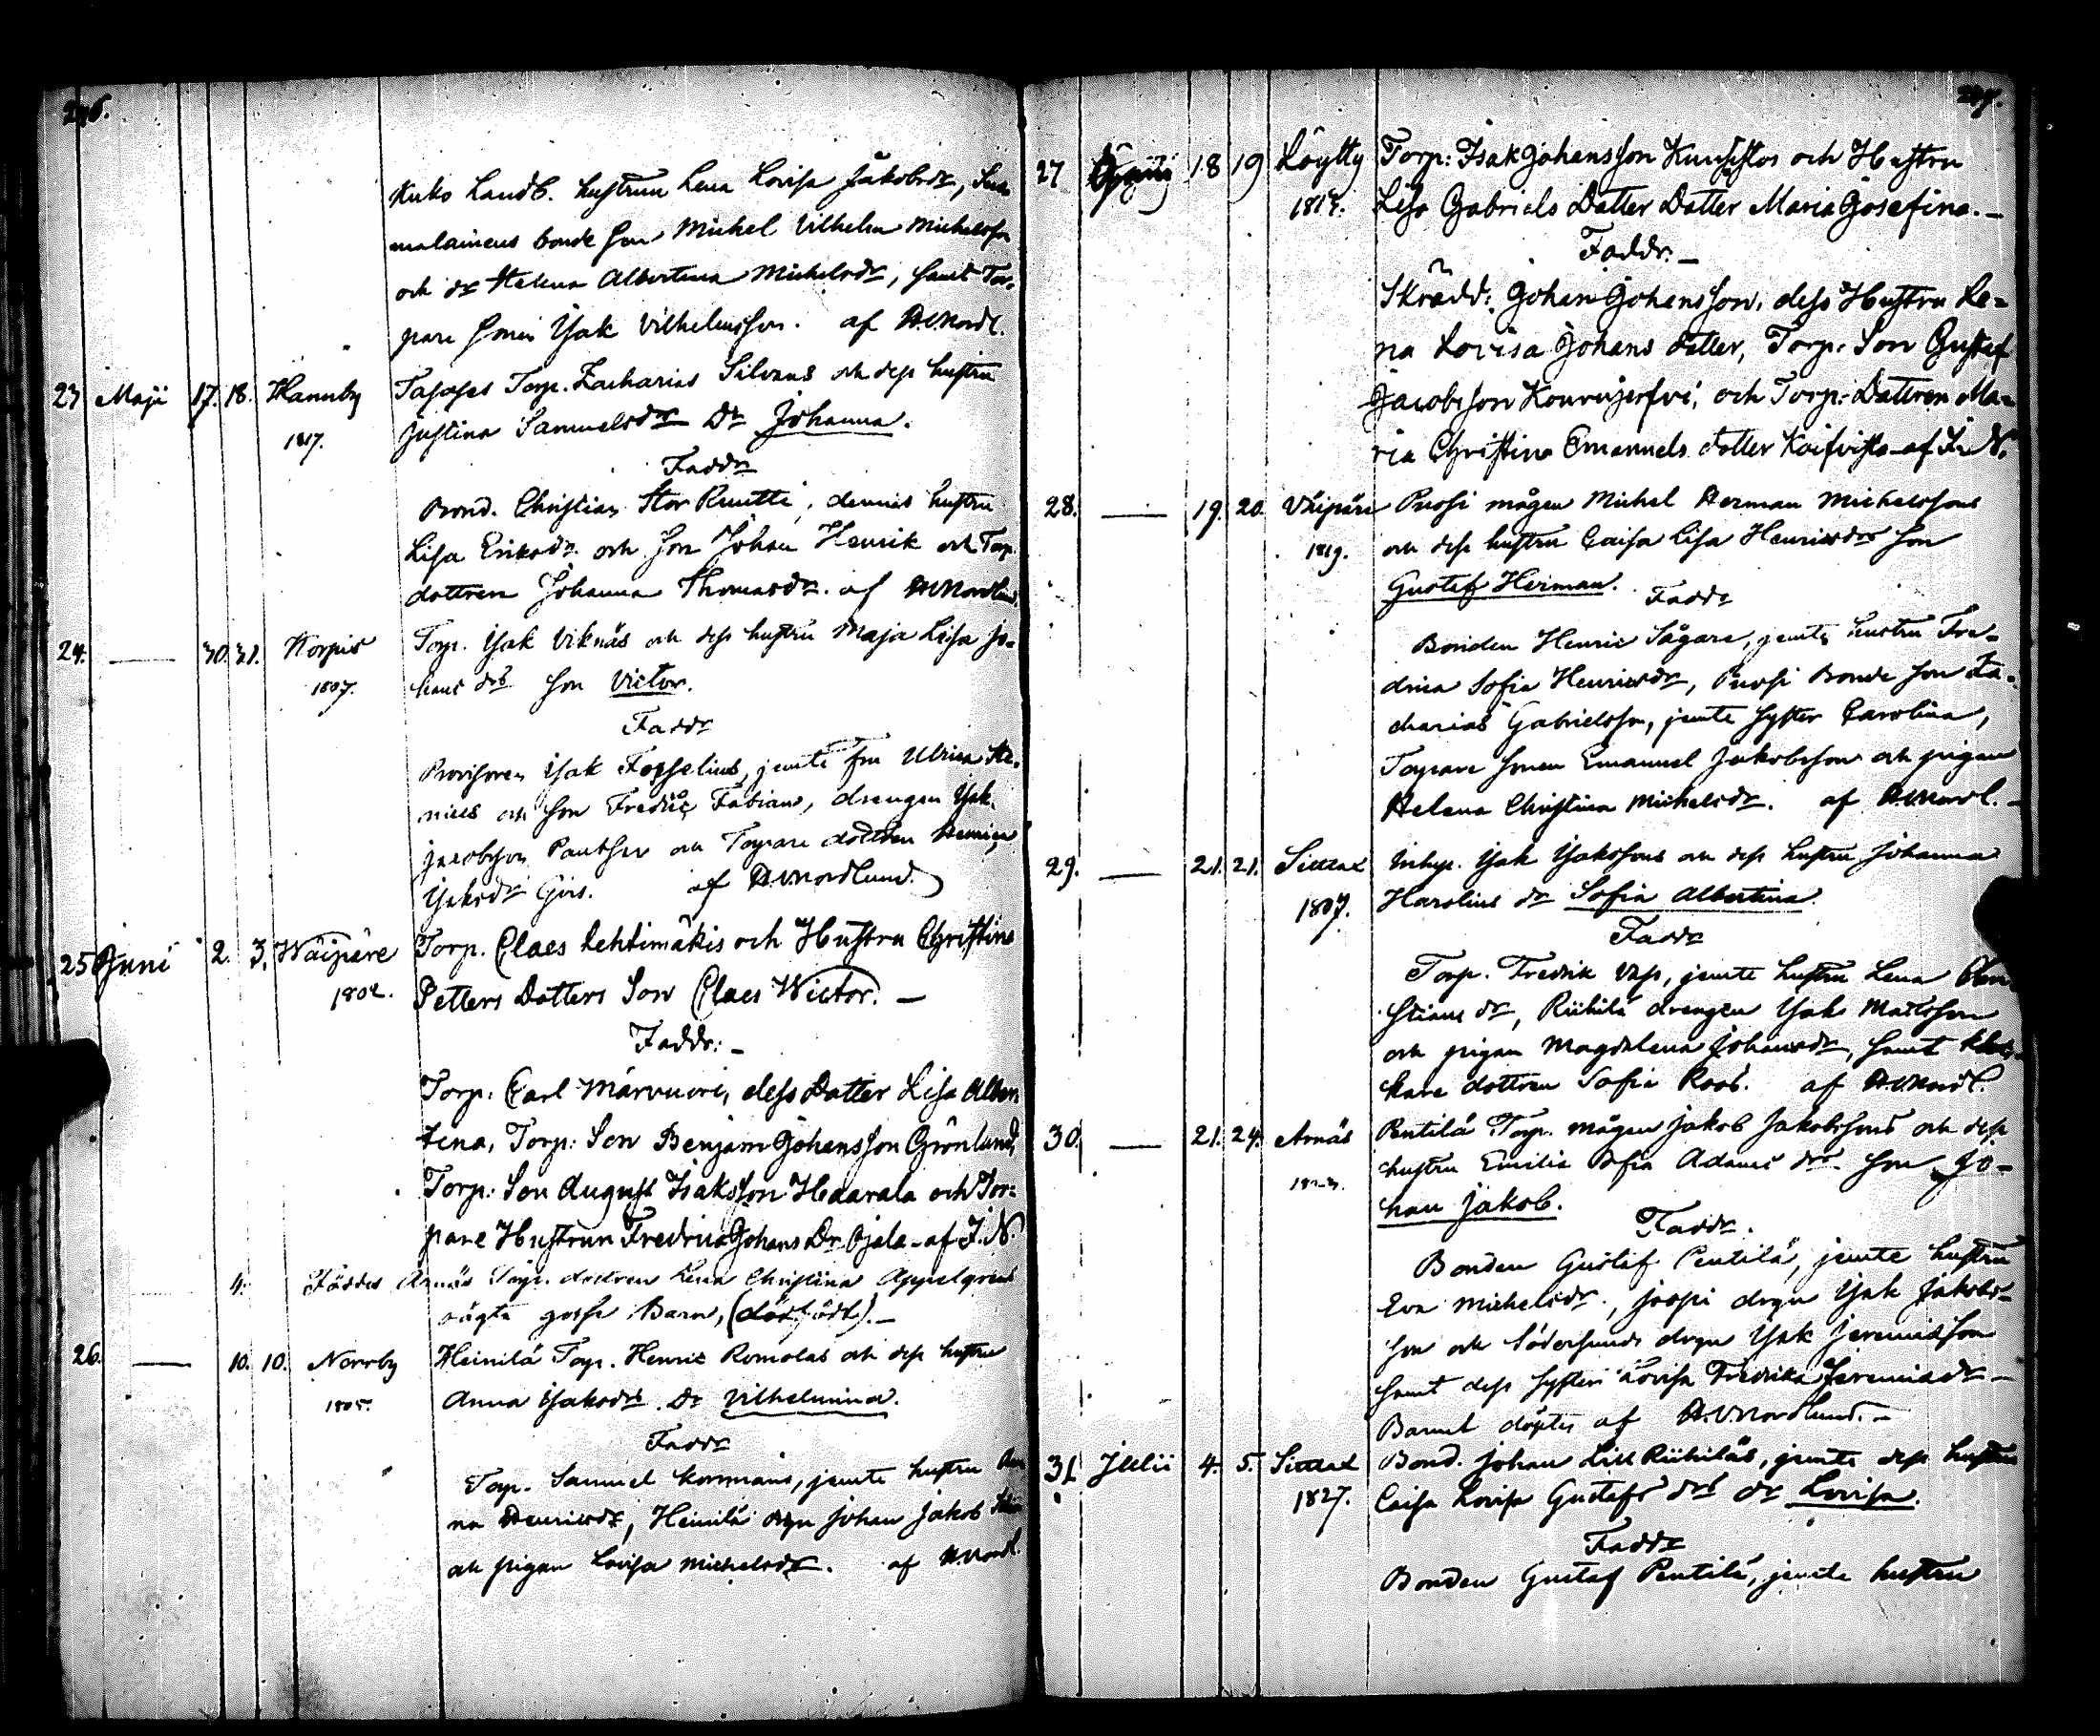 296.
Kuko Landb. hustrun Lena Lovisa Jakobsdr,
malainens bonde son Michel Vilhelm Michelsson
och dr Helena Albertina Michelsdr, samt Tor-
pare sonen Isak Vilhelmsson. af
23 Maji 17. 18. Hannby Torp. Zacharias Silvans och dess hustru
1817. Justina Samuelsdrs Dr Johanna.
Faddr
Bond. Christian Stor Ruutti, dennes hustru
Lisa Eriksdr och son Johan Henrik och Torp.
dottren Johanna Thomasdr. af
24. — 30. 31. Korpis Torp. Isak Viknäs och dess hustru Maja Lisa Jo-
1807. hans drs son Victor.
Faddr
Provisoren Isak Forsselius, jemte fru Ulrica
och son Fredric Fabian, drengen Isak
Jacobsson Panther och Torpare dottren
Isaksdr Girs. af Nordlund.
25 Juni 2. 3. Wäipäre Torp. Claes Lehtimäkis och Hustru Christina
1802. Petters Dotters Son Claes Wictor. —
Faddr: —
Torp: Carl Märvuori, dess Dotter Lisa Alber-
tina, Torp: Son Benjam Johansson Grönlund,
Torp: Son August Isaksson Haarala och Tor-
pare Hustrun Fredrica Johans Dr Ojala - af I. N.
4. Föddes Arnäs Torp. dottren Lena Christina Appelgrens
oägta gosse Barn, (dödfödt). —
26. — 10. 10. Norrby Heinilä Torp. Henric Romolas och dess hustru
1805. Anna Isaksdrs Dr Vilhelmina.
Faddr
Torp. Samuel Kormans, jemte hustru An
na Henricsdr, Heinilä drgn Johan Jakob
och pigan Lovisa Michelsdr. af
297.
27 Junii 18 19 Löytty Torp: Isak Johansson Kunistos och Hustru
1818. Lisa Gabriels Dotter Dotter Maria Josefina. —
Faddr: —
Skrädd: Johan Johansson, dess Hustru Le-
na Lovisa Johans dotter, Torp: Son Gustaf
Jacobsson Kourujerfvi, och Torp: Dottren Ma-
ria Christina Emanuels dotter Koifvisto - af I. N.
28. — 19. 20. Väipäre Puosi mågen Michel Herman Michelssons
1819. och dess hustru Caisa Lisa Henricsdrs son
Gustaf Herman.
Faddr
Bonden Henric Sågare, jemte hustru Fre-
drica Sofia Henricsdr, Puosi Bonde son Za-
charias Gabrielsson, jemte syster Carolina,
Torpare sonen Emanuel Jakobsson och pigan
Helena Christina Michelsdr. af
29. — 21. 21. Sittlax Inhys. Isak Isakssons och dess hustru Johanna
1807. Karolius dr Sofia Albertina.
Faddr
Torp. Fredrik jemte hustru Lena Chri-
stians dr, Riihilä drengen Isak Mattsson
och pigan Magdalena Johansdr, samt
kare dottren Sofia Roos. af
30. — 21. 24. Arnäs Pentilä Torp. mågen Jakob Jakobssons och dess
hustru Emilia Sofia Adams drs son Jo-
han Jakob.
Faddr.
Bonden Gustaf Pentilä, jemte hustru
Eva Michelsdr., Joopi drgn Isak Jakobs-
son och Södersunds drgn Isak Jeremiasson
samt dess syster Lovisa Fredrika Jeremiasdr —
Barnet döptes af Nordlund. —
31. Julii 4. 5. Sittlax Bond. Johan Lill Riihiläs, jemte dess hustru
1827. Caisa Lovisa Gustafs drs dr Lovisa.
Faddr
Bonden Gustaf Pentilä, jemte hustru